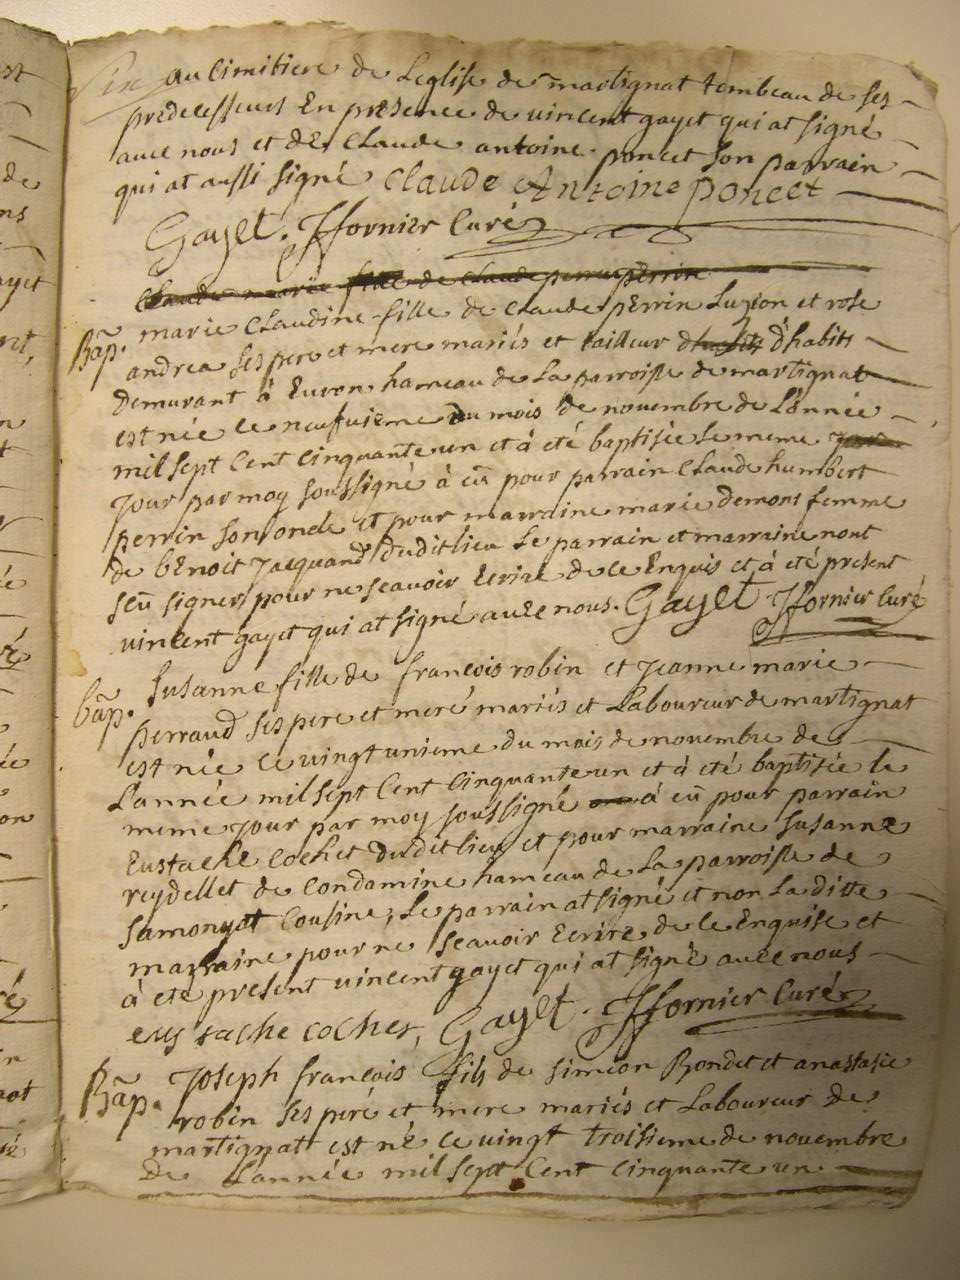 au cimitiere de Leglise de martignat tombeau de ses
predecesseurs En presence de vincent gayet qui at signé
avec nous et de Claude antoine poncet son parrain
qui at aussi signé Claude Antoine poncet
Gayet. Jfornier Curé
Claude marie fille de claude perrin
Bap. marie Claudine fille de Claude perrin Luzion et rose
andrea ses pere et mere mariés et tailleur d'habits
Demurant à Evron hameau de La parroisse de martignat
est née ce neufvieme du mois de novembre de L'année
mil sept Cent Cinquante un et à été baptisée Le meme
Jour par moy soussigné à eu pour parrain Claude humbert
perrin son oncle et pour marraine marie demons femme
de bEnoit Jacquand duditlieu Le parrain et marraine nont
sçu signer pour ne sçavoir Ecrire de ce Enquis et à été present
vincent gayet qui at signé avec nous. Gayet Jfornier Curé
bap. Susanne fille de francois robin et Jeanne marie
perraud ses pere et mere mariés et Laboureur de martignat
est née ce vingt unieme du mois de novembre de
L'année mil sept Cent Cinquante un et à eté baptisée le
meme Jour par moy soussigné à eu pour parrain
Eustache Cochet duditlieu et pour marraine Susanne
reydellet de Condamine hameau de La parroisse de
Samonyat Cousine, Le parrain at signé et non La ditte
marraine pour ne sçavoir Ecrire de ce Enquise et
à eté present vincent gayet qui at signé avec nous
eustache cochet, Gayet. Jfornier Curé
Bap. Joseph francois fils de simeon Rondet et anastasie
robin ses peré et mere mariés et Laboureur de
martignat est né ce vingt troisieme de novembre
de L'année mil sept Cent Cinquante un